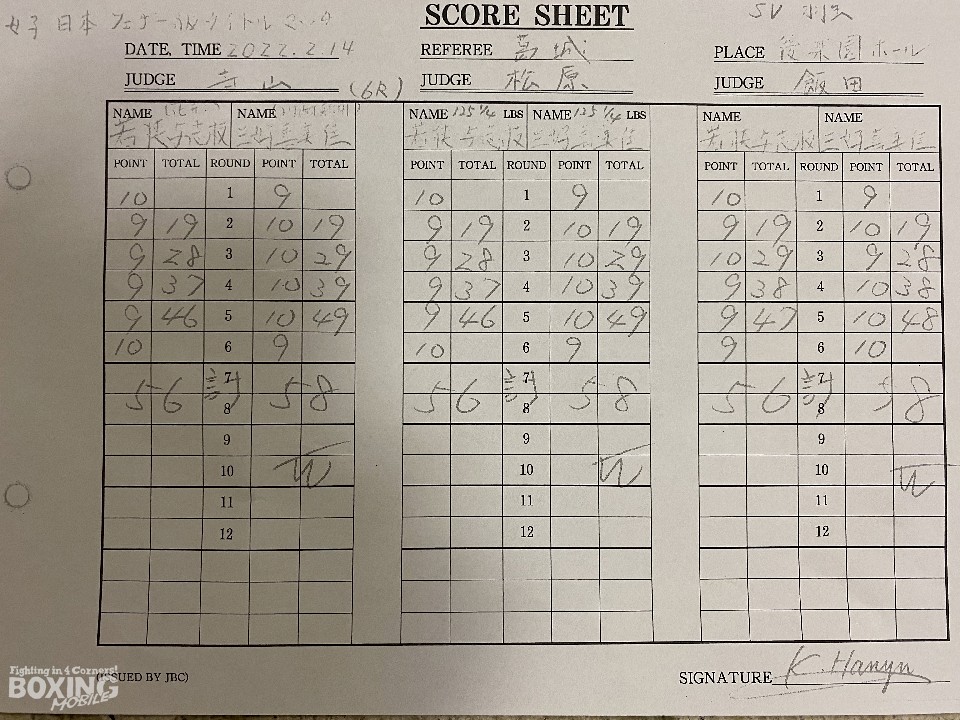 SCORE SHEET
女子 日本 フェザー級タイトルマッチ
SV
DATE, TIME 2022.2.14
REFEREE 葛城
PLACE 後楽園ホール
JUDGE 寺山 (6R)
JUDGE 松原
JUDGE 飯田
NAME NAME NAME 125 1/4 LBS NAME 125 1/4 LBS NAME NAME
若狭与志枝 若狭与志枝 若狭与志枝
POINT TOTAL ROUND POINT TOTAL POINT TOTAL ROUND POINT TOTAL POINT TOTAL ROUND POINT TOTAL
10 1 9 10 1 9 10 1 9
9 19 2 10 19 9 19 2 10 19 9 19 2 10 19
9 28 3 10 29 9 28 3 10 29 10 29 3 9 28
9 37 4 10 39 9 37 4 10 39 9 38 4 10 38
9 46 5 10 49 9 46 5 10 49 9 47 5 10 48
10 6 9 10 6 9 9 6 10
7 7 7
56 計 58 56 計 58 56 計 58
8 8 8
9 9 9
10 W 10 W 10 W
11 11 11
12 12 12
(ISSUED BY JBC)
SIGNATURE K. Hanyu
Fighting in 4 Corners!
BOXING
MOBILE